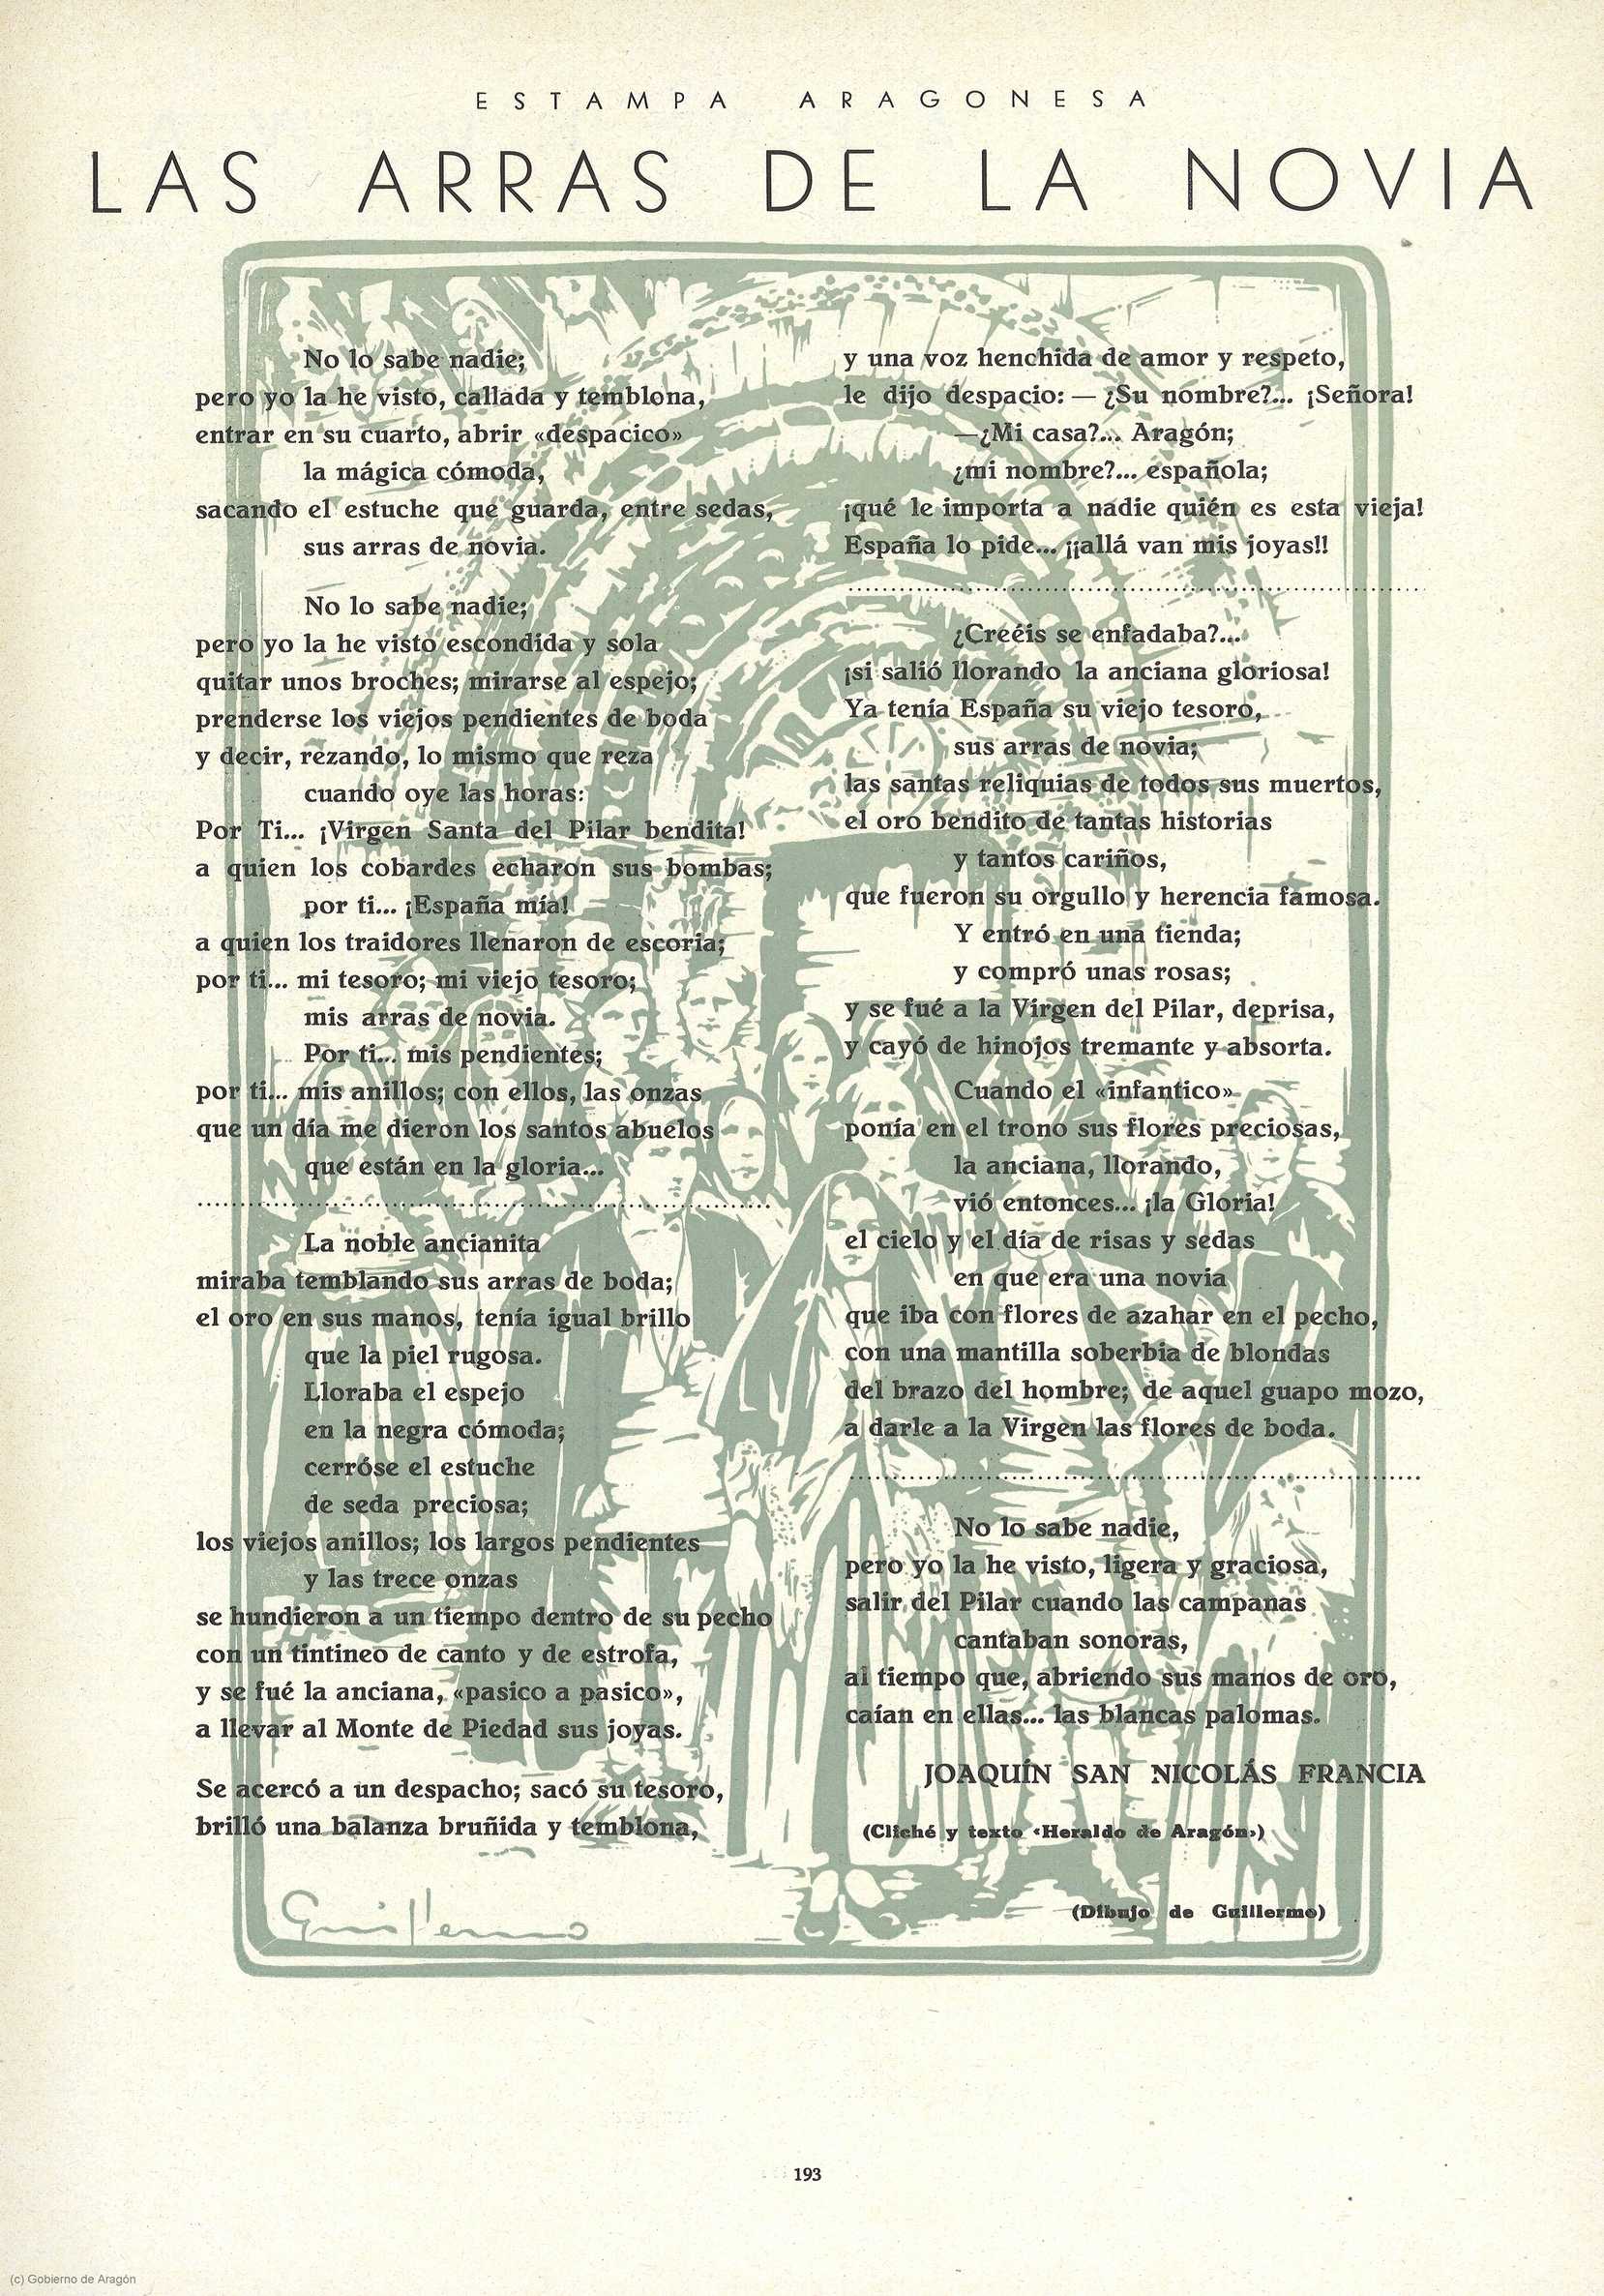 ESTAMPA ARAGONESA
LAS ARRAS DE LA NOVIA
No lo sabe nadie;
pero yo la he visto, callada y temblona,
entrar en su cuarto, abrir «despacico»
la mágica cómoda,
sacando el estuche que guarda, entre sedas,
sus arras de novia.
No lo sabe nadie;
pero yo la he visto escondida y sola
quitar unos broches; mirarse al espejo;
prenderse los viejos pendientes de boda
y decir, rezando, lo mismo que reza
cuando oye las horas:
Por Ti... ¡Virgen Santa del Pilar bendita!
a quien los cobardes echaron sus bombas;
por ti... ¡España mía!
a quien los traidores llenaron de escoria;
por ti... mi tesoro; mi viejo tesoro;
mis arras de novia.
Por ti... mis pendientes;
por ti... mis anillos; con ellos, las onzas
que un día me dieron los santos abuelos
que están en la gloria...
La noble ancianita
miraba temblando sus arras de boda;
el oro en sus manos, tenía igual brillo
que la piel rugosa.
Lloraba el espejo
en la negra cómoda;
cerróse el estuche
de seda preciosa;
los viejos anillos; los largos pendientes
y las trece onzas
se hundieron a un tiempo dentro de su pecho
con un tintineo de canto y de estrofa,
y se fué la anciana, «pasico a pasico»,
a llevar al Monte de Piedad sus joyas.
Se acercó a un despacho; sacó su tesoro,
brilló una balanza bruñida y temblona,
y una voz henchida de amor y respeto,
le dijo despacio: — ¿Su nombre?... ¡Señora!
—¿Mi casa?... Aragón;
¿mi nombre?... española;
¡qué le importa a nadie quién es esta vieja!
España lo pide... ¡¡allá van mis joyas!!
¿Creéis se enfadaba?...
¡si salió llorando la anciana gloriosa!
Ya tenía España su viejo tesoro,
sus arras de novia;
las santas reliquias de todos sus muertos,
el oro bendito de tantas historias
y tantos cariños,
que fueron su orgullo y herencia famosa.
Y entró en una tienda;
y compró unas rosas;
y se fué a la Virgen del Pilar, deprisa,
y cayó de hinojos tremante y absorta.
Cuando el «infantico»
ponía en el trono sus flores preciosas,
la anciana, llorando,
vió entonces... ¡la Gloria!
el cielo y el día de risas y sedas
en que era una novia
que iba con flores de azahar en el pecho,
con una mantilla soberbia de blondas
del brazo del hombre; de aquel guapo mozo,
a darle a la Virgen las flores de boda.
No lo sabe nadie,
pero yo la he visto, ligera y graciosa,
salir del Pilar cuando las campanas
cantaban sonoras,
al tiempo que, abriendo sus manos de oro,
caían en ellas... las blancas palomas.
JOAQUÍN SAN NICOLÁS FRANCIA
(Cliché y texto «Heraldo de Aragón»)
(Dibujo de Guillermo)
Guillermo
193
(c) Gobierno de Aragón